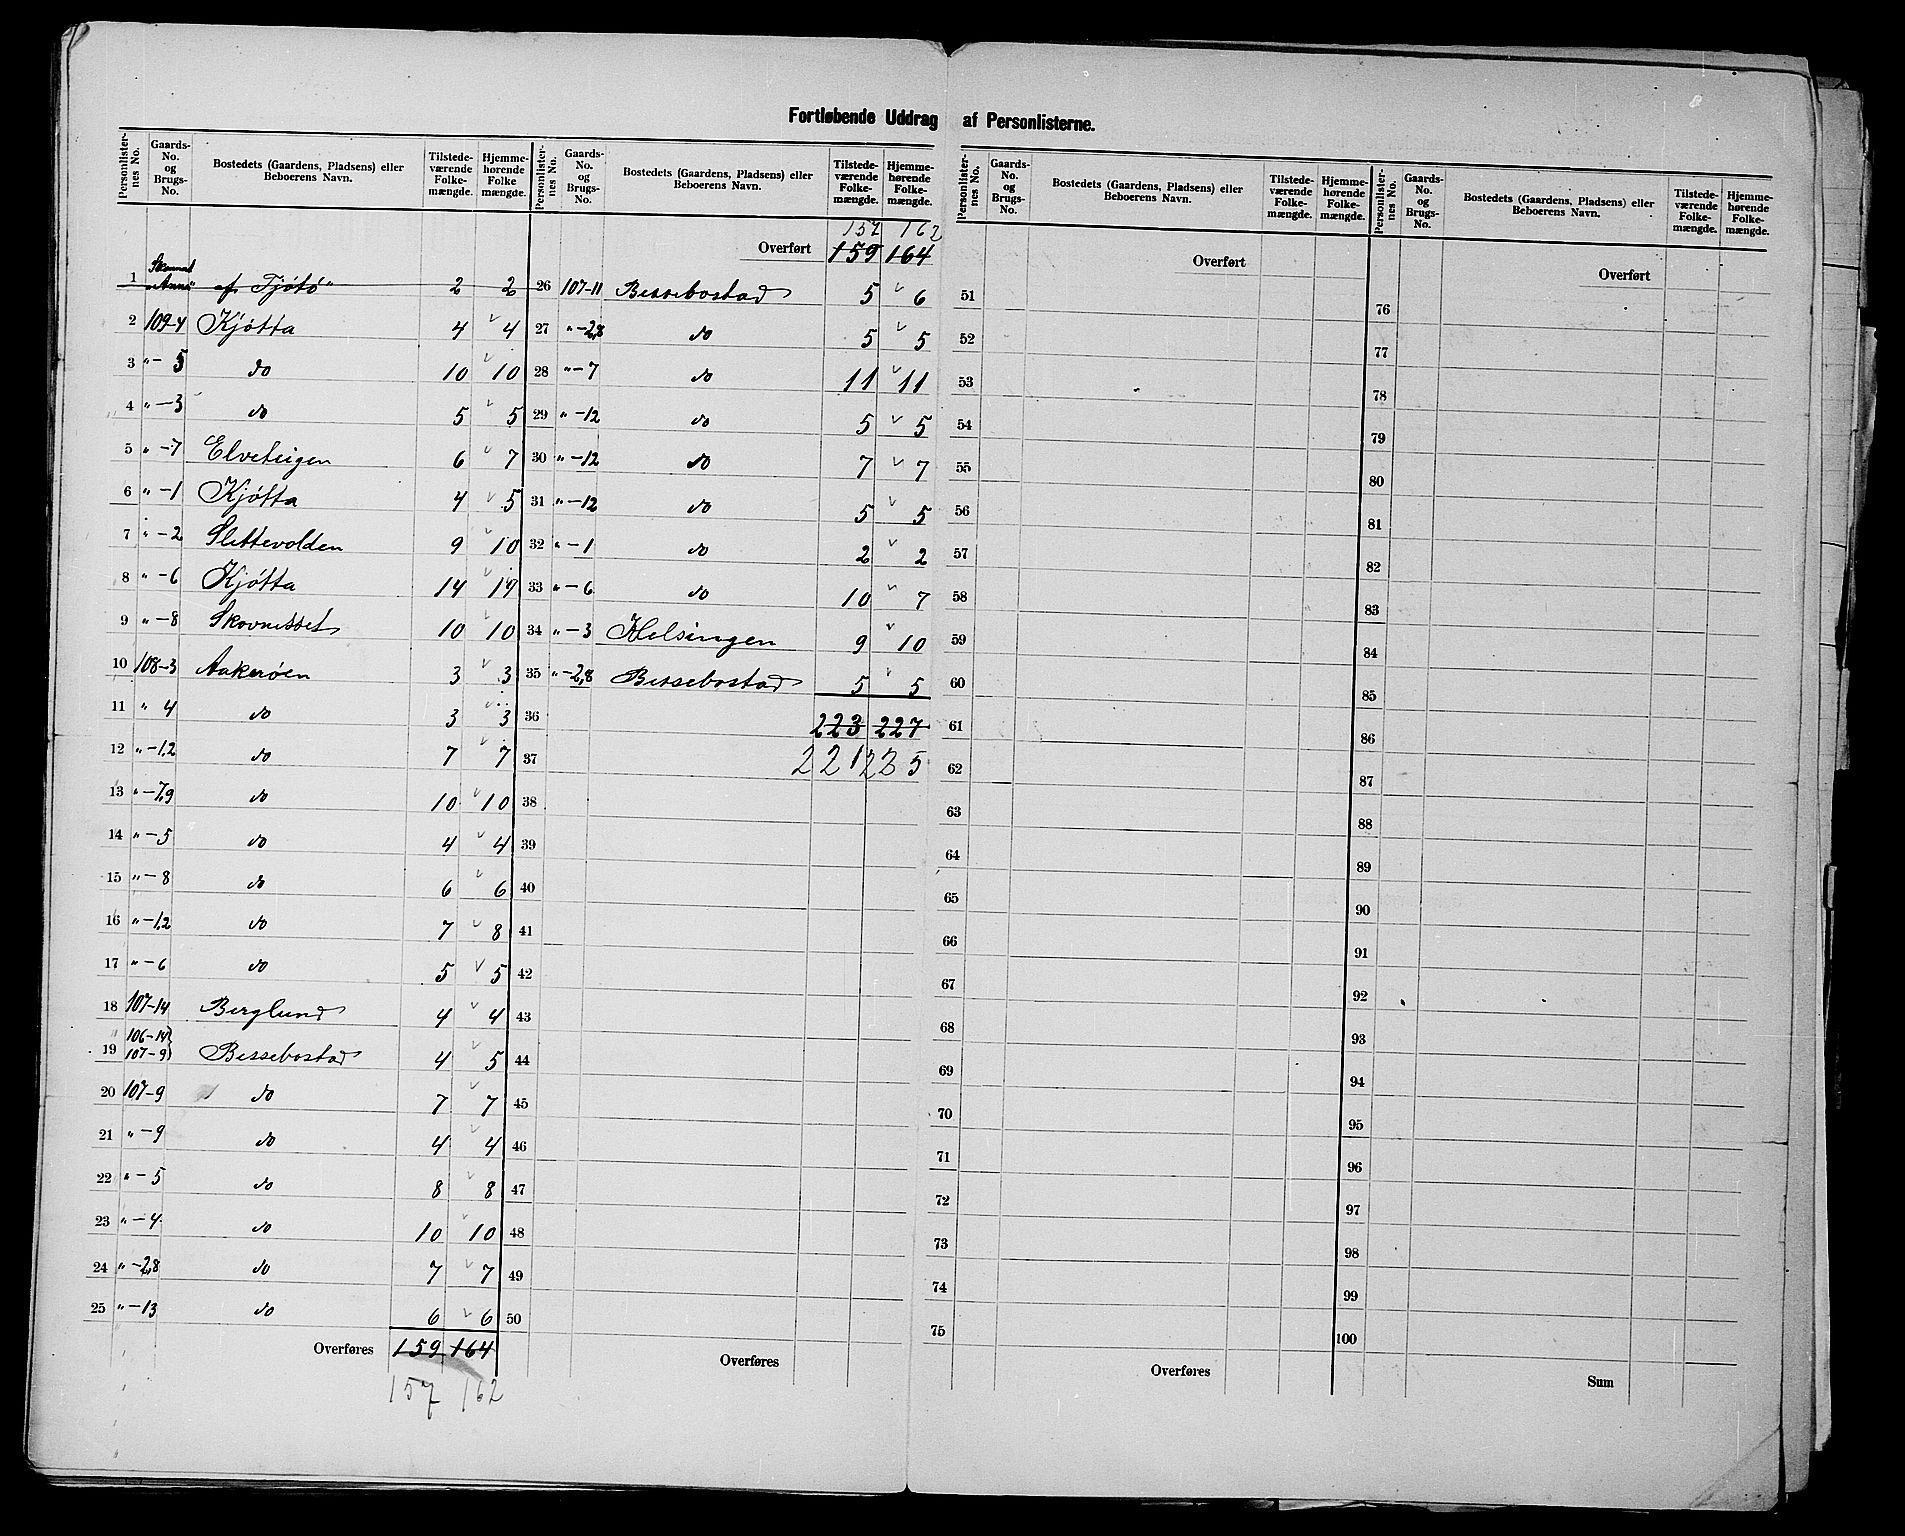 Fortløbende Uddrag af Personlisterne.
Personlisternes No. Gaards-No. og Brugs-No. Bostedets (Gaardens, Pladsens) eller Beboerens Navn. Tilstedeværende Folkemængde. Hjemmehørende Folkemængde.
1 Skonnert „Anna" af Tjøtø" 2 2
2 109-4 Kjøtta 4 4
3 „-5 do 10 10
4 „-3 do 5 5
5 „-7 Elveteigen 6 7
6 „-1 Kjøtta 4 5
7 „-2 Slettevolden 9 10
8 „-6 Kjøtta 14 19
9 „-8 10 10
10 108-3 Aakerøen 3 3
11 „ 4 do 3 3
12 „-1,2 do 7 7
13 „-7,9 do 10 10
14 „-5 do 4 4
15 „-8 do 6 6
16 „-1,2 do 7 8
17 „-6 do 5 5
18 107-14 Berglund 4 4
19 106-14 107-9 Bessebostad 4 5
20 107-9 do 7 7
21 „-9 do 4 4
22 „-5 do 8 8
23 „-4 do 10 10
24 „-2,8 do 7 7
25 „-13 do 6 6
Overføres 159 164
157 162
Personlisternes No. Gaards-No. og Brugs-No. Bostedets (Gaardens, Pladsens) eller Beboerens Navn. Tilstedeværende Folkemængde. Hjemmehørende Folkemængde.
157 162
Overført 159 164
26 107-11 Bessebostad 5 6
27 „-2,8 do 5 5
28 „-7 do 11 11
29 „-12 do 5 5
30 „-12 do 7 7
31 „-12 do 5 5
32 „-1 do 2 2
33 „-6 do 10 7
34 „-3 Helsingen 9 10
35 „-2,8 Bessebostad 5 5
36 223 227
37 221 225
38
39
40
41
42
43
44
45
46
47
48
49
50
Overføres
Personlisternes No. Gaards-No. og Brugs-No. Bostedets (Gaardens, Pladsens) eller Beboerens Navn. Tilstedeværende Folkemængde. Hjemmehørende Folkemængde.
Overført
51
52
53
54
55
56
57
58
59
60
61
62
63
64
65
66
67
68
69
70
71
72
73
74
75
Overføres
Personlisternes No. Gaards-No. og Brugs-No. Bostedets (Gaardens, Pladsens) eller Beboerens Navn. Tilstedeværende Folkemængde. Hjemmehørende Folkemængde.
Overført
76
77
78
79
80
81
82
83
84
85
86
87
88
89
90
91
92
93
94
95
96
97
98
99
100
Sum